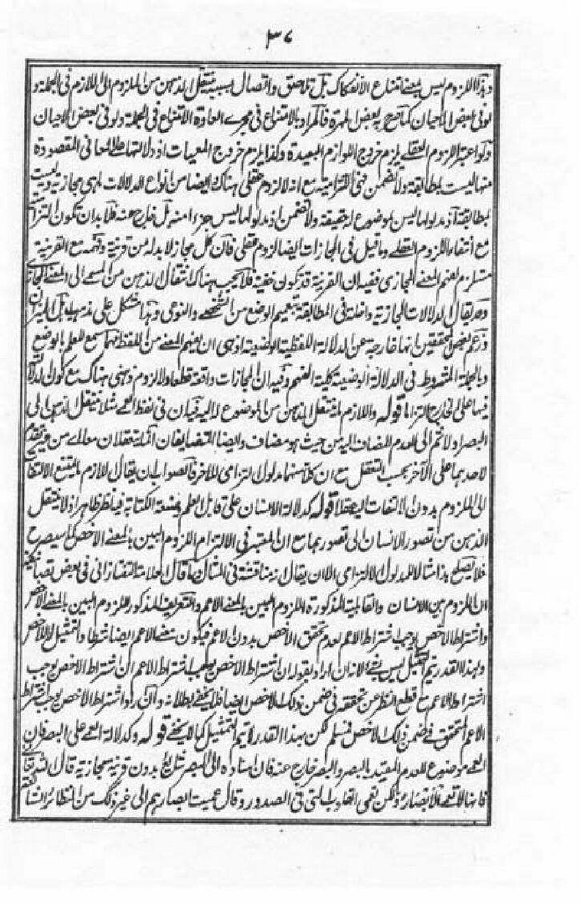 ٣٧
وهذا اللزوم ليس بمعنى امتناع الانفكاك بل تلاحق واتصال بسببه ينتقل الذهن من الملزوم الى اللازم فى الجملة و
لو فى بعض الاحيان كما صرح به بعض المهرة فالمراد بالامتناع فى مجرى العادة الامتناع فى الجملة ولو فى بعض الاحيان
ولو اعتبر اللزوم العقلى يلزم خروج اللوازم البعيدة وكذا يلزم خروج المعميات اذ دلالتها على المعانى المقصودة
منها ليست بمطابقة ولا تضمن فهى التزامية مع انه لا لزوم عقلى هناك ايضا من انواع الدلالات هى مجازية ليست
بمطابقة اذ مدلولها ليس موضوع الحقيقة ولا تضمن اذ مدلولها ليس جزءا منه بل خارج عنه فلا بد ان تكون التزامية
مع انتفاء اللزوم العقلى وما قيل فى المجازات ايضا لزوم عقلى فان كل مجاز لا بد له من قرينة وفهمه مع القرينة
مستلزم لفهم المعنى المجازى ففيه ان القرينة قد تكون خفية فلا يجب هناك انتقال الذهن من المسمى الى المعنى المجازى
وقد يقال الدلالات المجازية داخلة فى المطابقة بتعميم الوضع من الشخصى والنوعى وهذا مشكل على مذهب اهل الميزان
وزعم بعض المحققين انها خارجة عن الدلالة اللفظية الوضعية اذ هى ان يفهم المعنى من اللفظ مهما سمع للعلم بالوضع
وبالجملة المشروط فى الدلالة الوضعية كلية الفهم وفيه ان المجازات واقعة قطعا ولا لزوم ذهنى هناك مع كون الدلالة
فيها على الخارج التزاما قوله واللازم ما ينتقل الذهن من الموضوع له اليه فيه ان فى لفظ العمى مثلا ينتقل الذهن الى
البصر اولا ثم الى العدم المضاف اليه من حيث هو مضاف وايضا المتضايفان انما يتعقلان معا لا من حيث تقدم
لاحدهما على الآخر بحسب التعقل مع ان كلا منهما مدلول التزامى للآخر فالصواب ان يقال لازم ما يمتنع الالتفات
الى الملزوم بدون الالتفات اليه عقلا قوله كدلالة الانسان على قابل العلم وصنعة الكتابة فيه نظر ظاهر اذ لا ينتقل
الذهن من تصور الانسان الى تصور بهما مع ان المعتبر فى الالتزام اللزوم البين بالمعنى الاخص كما سيصرح
فلا يصلح هذا مثالا للمدلول الالتزامى الا ان يقال هذا مناقشة فى المثال كما قال العلامة التفتازانى فى بعض تصانيفه
ان اللزوم بين الانسان والقابلية المذكورة اللزوم البين بالمعنى الاعم والتعريف المذكور للزوم البين بالمعنى الاخص
واشتراط الاخص يوجب اشتراط الاعم لعدم تحقق الاخص بدون الاعم فيكون معنى الاعم ايضا شرطا والتمثيل للاخص
وبهذا القدر يتم التمثيل ليس بشئ لانه ان اراد بقوله ان اشتراط الاخص يوجب اشتراط الاعم ان اشتراط الاخص يوجب
اشتراط الاعم مع قطع النظر عن تحققه فى ضمن ذلك الاخص ايضا فلا يخفى بطلانه وان اراد اشتراط الاخص يوجب اشتراط
الاعم المتحقق فى ضمن ذلك الاخص فمسلم لكن بهذا القدر لا يتم التمثيل كما لا يخفى قوله وكدلالة العمى على البصر فان
العمى موضوع للعدم المقيد بالبصر والبصر خارج عنه فان اسناده الى البصر شائع بدون قرينة مجازية قال الله تعالى
فانها لا تعمى الابصار ولكن تعمى القلوب التى فى الصدور وقال عميت ابصارهم الى غير ذلك من النظائر الشائعة